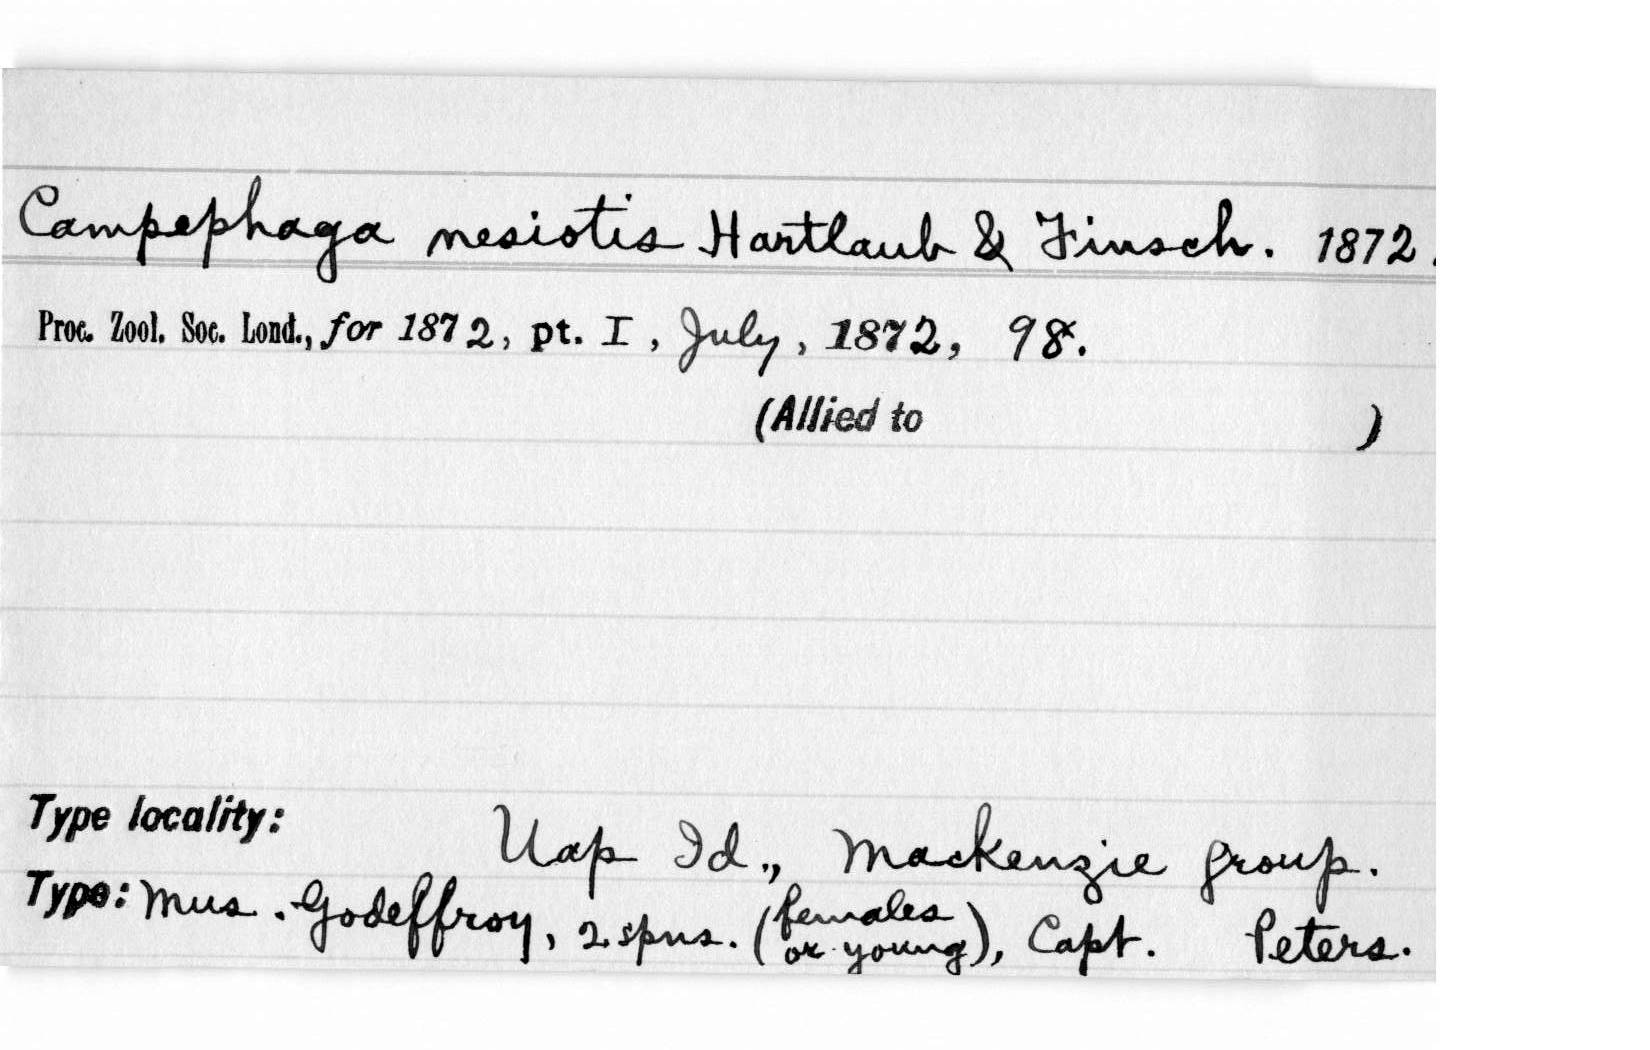 Campephaga nesiotis Hartlaub & Finsch. 1872.
Proc. Zool. Soc. Lond., for 1872, pt. I, July, 1872, 98.
(Allied to )
Type locality: Uap Id., Mackenzie group.
Type: Mus. Godeffroy, 2 spns. (females or young), Capt. Peters.